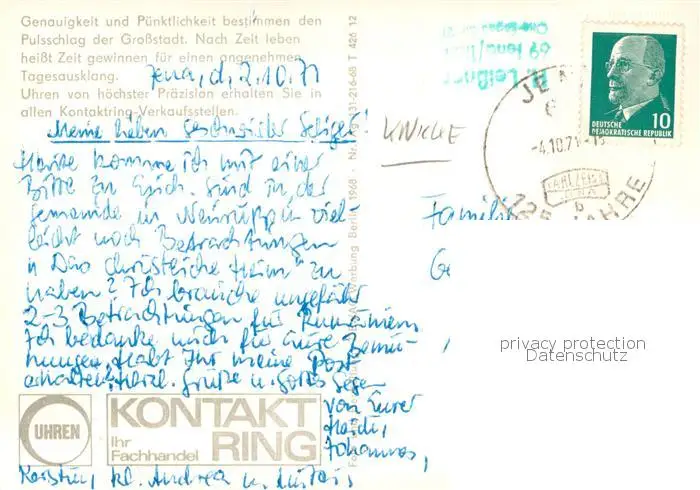 Genauigkeit und Pünktlichkeit bestimmen den
Pulsschlag der Großstadt. Nach Zeit leben
heißt Zeit gewinnen für einen angenehmen
Tagesausklang.
Uhren von höchster Präzision erhalten Sie in
allen Kontaktring-Verkaufsstellen.
Jena, d. 2.10.71
Meine lieben Geschwister Seliger!
KNICKE
Heute komme ich mit einer
Bitte zu Euch. Sind in der
Gemeinde in Neuruppin viel
leicht noch Betrachtungen
"Das christliche Heim" zu
haben? Ich brauche ungefähr
2-3 Betrachtungen für Rumänien
Ich bedanke mich für Eure Bemü-
hungen. Habt Ihr meine Post
erhalten? Herzl. Grüße u. Gottes Segen
von Eurer
Johannes,
Kerstin, kl. Andrea u.
UHREN
KONTAKT
RING
Ihr
Fachhandel
H. Leißner
69 Jena/
JENA
-4.10.71
CARL ZEISS
JENA
b
125 JAHRE
10
DEUTSCHE
DEMOKRATISCHE REPUBLIK
Familie
privacy protection
Datenschutz